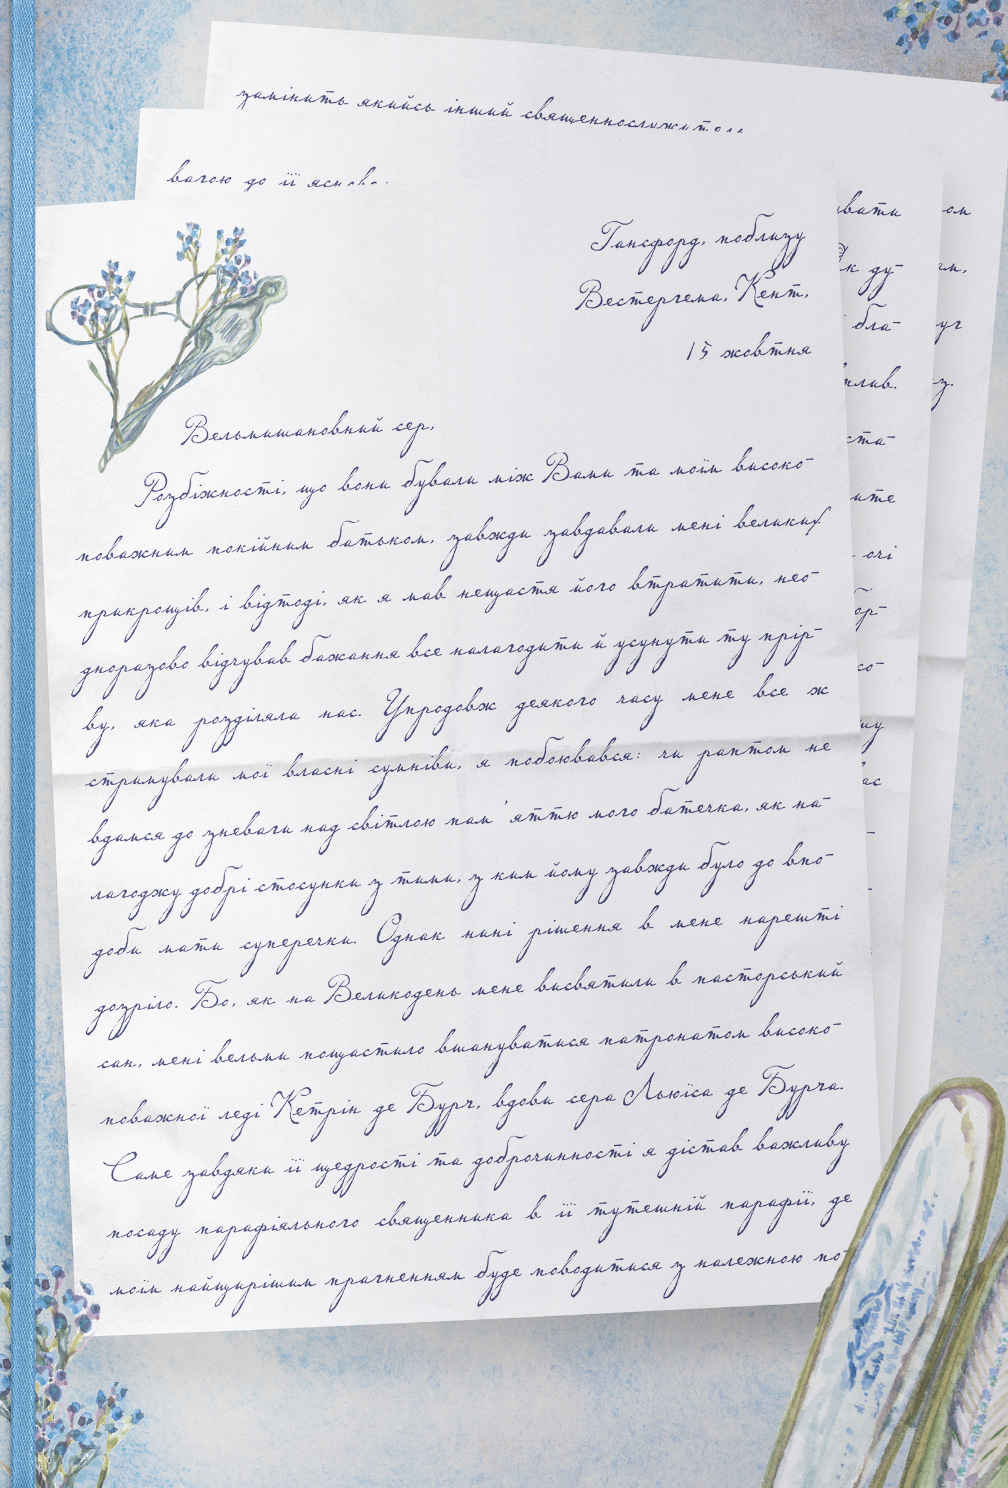 замінить якийсь інший
вагою до її
Гансфорд, поблизу
Вестергема, Кент,
15 жовтня
Вельмишановний сер,
Розбіжності, що вони бували між Вами та моїм високо-
поважним покійним батьком, завжди завдавали мені великих
прикрощів, і відтоді, як я мав нещастя його втратити, нео-
дноразово відчував бажання все налагодити й усунути ту прір-
ву, яка розділяла нас. Упродовж деякого часу мене все ж
стримували мої власні сумніви, я побоювався: чи раптом не
вдамся до зневаги над світлою пам'яттю мого батечка, як на-
лагоджу добрі стосунки з тими, з ким йому завжди було до впо-
доби мати суперечки. Однак нині рішення в мене нарешті
дозріло. Бо, як на Великодень мене висвятили в пасторський
сан, мені вельми пощастило вшануватися патронатом високо-
поважної леді Кетрін де Бург, вдови сера Льюїса де Бурга.
Саме завдяки її щедрості та доброчинності я дістав важливу
посаду парафіяльного священника в її тутешній парафії, де
моїм найщирішим прагненням буде поводитися з належною по-